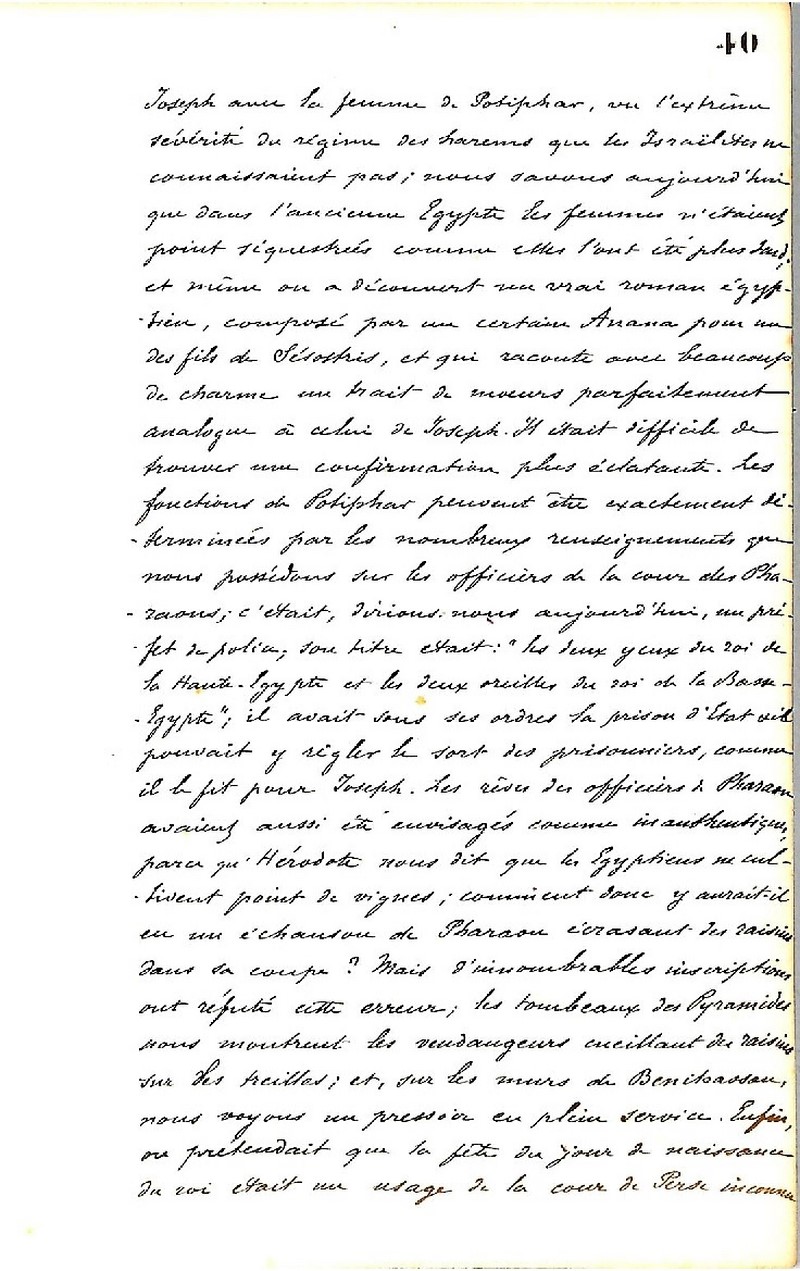 40
Joseph avec la femme de Potiphar, vu l'extrême
sévérité du régime des harems que les Israëlites ne
connaissaient pas; nous savons aujourd'hui
que dans l'ancienne Egypte les femmes n'étaient
point séquestrées comme elles l'ont été plus tard;
et même on a découvert un vrai roman égyp-
-tien, composé par un certain Anana pour un
des fils de Sésostris, et qui raconte avec beaucoup
de charme un trait de moeurs parfaitement
analogue à celui de Joseph. Il était difficile de
trouver une confirmation plus éclatante. Les
fonctions de Potiphar peuvent être exactement dé-
-terminées par les nombreux renseignements que
nous possédons sur les officiers de la cour des Pha-
-raons; c'était, dirions-nous aujourd'hui, un pré-
-fet de police; son titre était: "les deux yeux du roi de
la Haute-Egypte et les deux oreilles du roi de la Basse-
-Egypte"; il avait sous ses ordres la prison d'Etat et il
pouvait y régler le sort des prisonniers, comme
il le fit pour Joseph. Les rêves des officiers de Pharaon
avaient aussi été envisagés comme inauthentiques,
parce qu'Hérodote nous dit que les Egyptiens ne cul-
-tivent point de vignes; comment donc y aurait-il
eu un échanson de Pharaon écrasant des raisins
dans sa coupe? Mais d'innombrables inscriptions
ont réfuté cette erreur; les tombeaux des Pyramides
nous montrent les vendangeurs cueillant des raisins
sur des treilles; et, sur les murs de Benihassan,
nous voyons un pressoir en plein service. Enfin,
on prétendait que la fête du jour de naissance
du roi était un usage de la cour de Perse inconnu